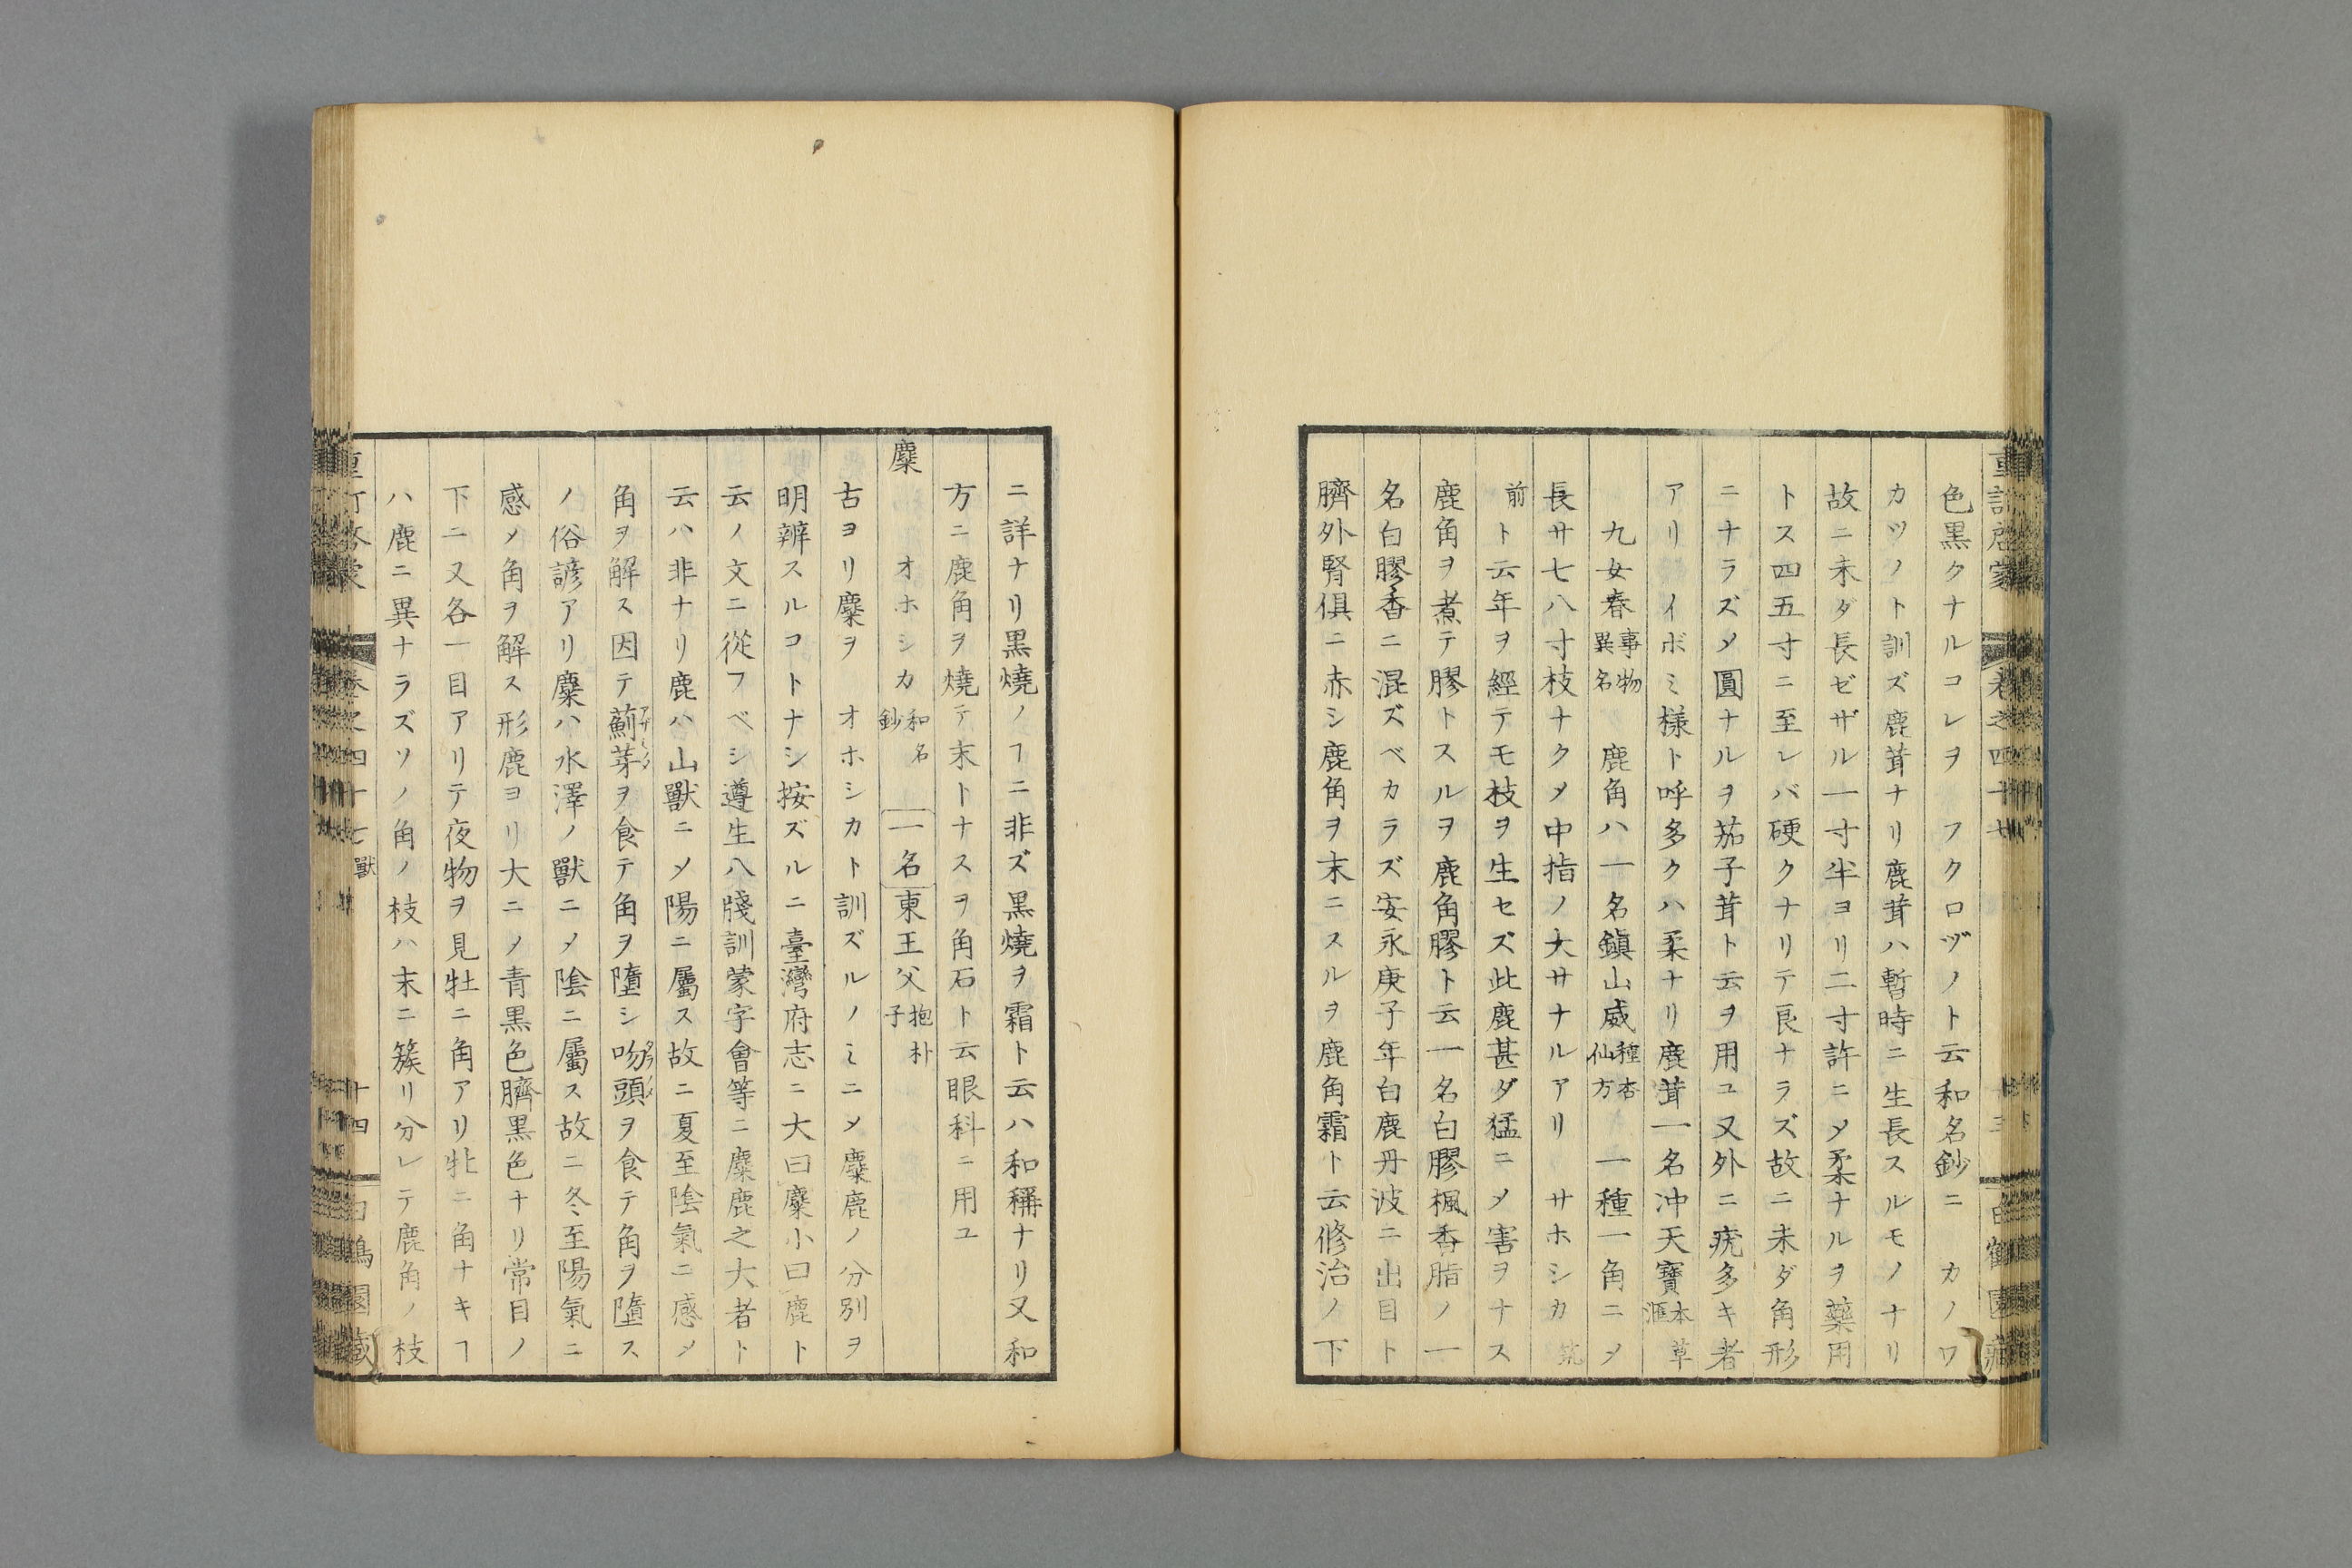 色黒クナルコレヲ　フクロヅノト云和名鈔ニ　カノワ
カヅノト訓ズ鹿茸ナリ鹿茸ハ暫時ニ生長スルモノナリ
故ニ未ダ長ゼザル一寸半ヨリ二寸許ニ〆柔ナルヲ藥用
トス四五寸ニ至レバ硬クナリテ良ナラズ故ニ未ダ角形
ニナラズ〆圓ナルヲ茄子茸ト云ヲ用ユ又外ニ疣多キ者
アリ　イボミ様ト呼多クハ柔ナリ鹿茸一名沖天寶本草滙
九女春事物異名　鹿角ハ一名鎭山威種杏仙方　一種一角ニ〆
長サ七八寸枝ナクメ中指ノ大サナルアリ　サホシカ筑
前ト云年ヲ經テモ枝ヲ生セズ此鹿甚ダ猛ニ〆害ヲナス
鹿角ヲ煮テ膠トスルヲ鹿角膠ト云一名白膠楓香脂ノ一
名白膠香ニ混ズベカラズ安永庚子年白鹿丹波ニ出目ト
臍外腎俱ニ赤シ鹿角ヲ末ニスルヲ鹿角霜ト云修治ノ下
ニ詳ナリ黒燒ノヿニ非ズ黒燒ヲ霜ト云ハ和稱ナリ又和
方ニ鹿角ヲ燒テ末トナスヲ角石ト云眼科ニ用ユ
麋　オホシカ和名鈔　一名東王父抱朴子
古ヨリ麋ヲ　オホシカト訓ズルノミニ〆麋鹿ノ分別ヲ
明辨スルコトナシ按ズルニ臺灣府志ニ大曰麋小曰鹿ト
云ノ文ニ從フベシ遵生八牋訓蒙字會等ニ麋鹿之大者ト
云ハ非ナリ鹿ハ山獸ニ〆陽ニ屬ス故ニ夏至陰氣ニ感〆
角ヲ解ス因テ薊芽ヲ食テ角ヲ墮シ吻頭ヲ食テ角ヲ墮ス
ノ俗諺アリ麋ハ水澤ノ獸ニ〆陰ニ屬ス故ニ冬至陽氣ニ
感〆角ヲ解ス形鹿ヨリ大ニ〆青黒色臍黒色ナリ常目ノ
下ニ又各一目アリテ夜物ヲ見牡ニ角アリ牝ニ角ナキヿ
ハ鹿ニ異ナラズソノ角ノ枝ハ末ニ簇リ分レテ鹿角ノ枝